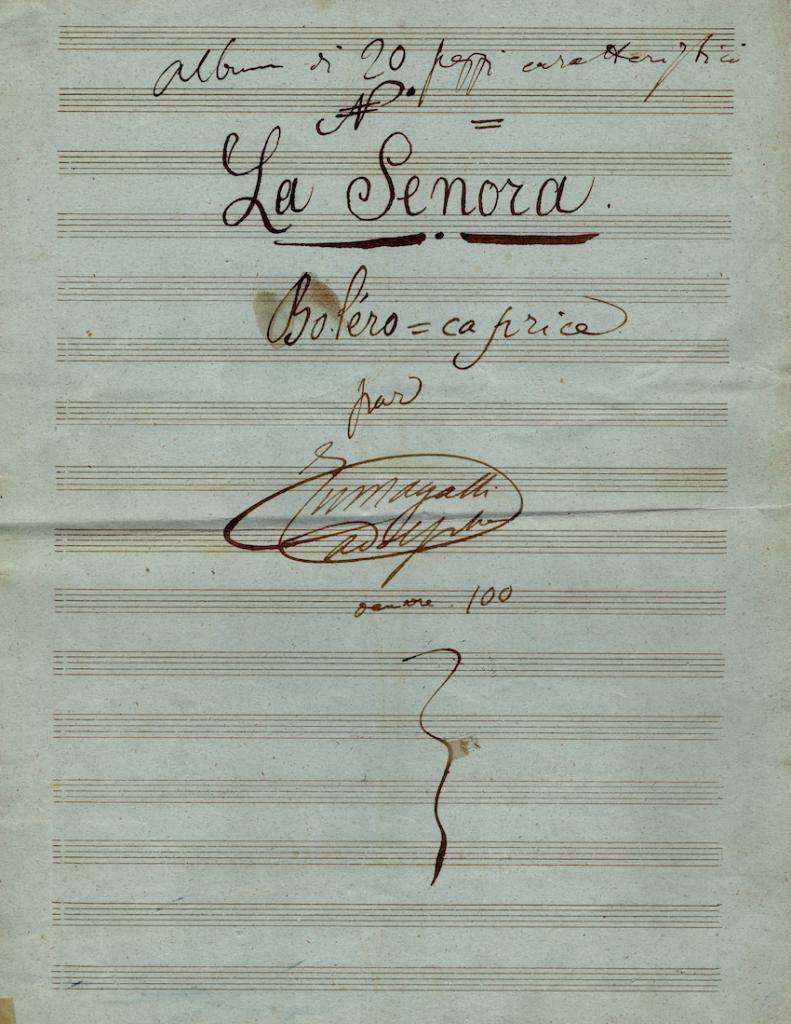 album di 20 pezzi caratteristici
N. =
La Senora.
Boléro = caprice
par
Fumagalli
adolphe
oeuvre. 100